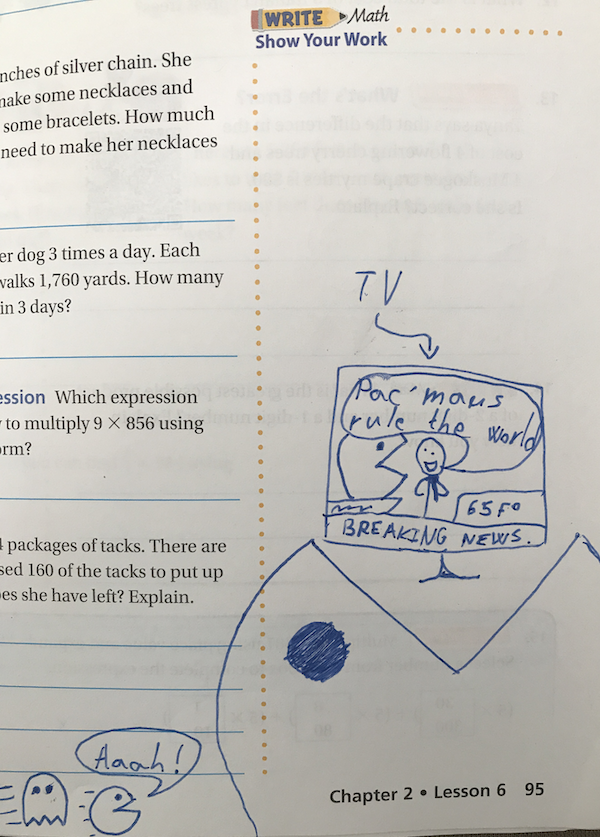 WRITE Math
Show Your Work
nches of silver chain. She
make some necklaces and
some bracelets. How much
need to make her necklaces
er dog 3 times a day. Each
walks 1,760 yards. How many
in 3 days?
ession Which expression
to multiply 9 × 856 using
orm?
packages of tacks. There are
sed 160 of the tacks to put up
es she have left? Explain.
TV
Pac mans
rule the world
65F°
BREAKING NEWS.
Aaah!
Chapter 2 • Lesson 6 95